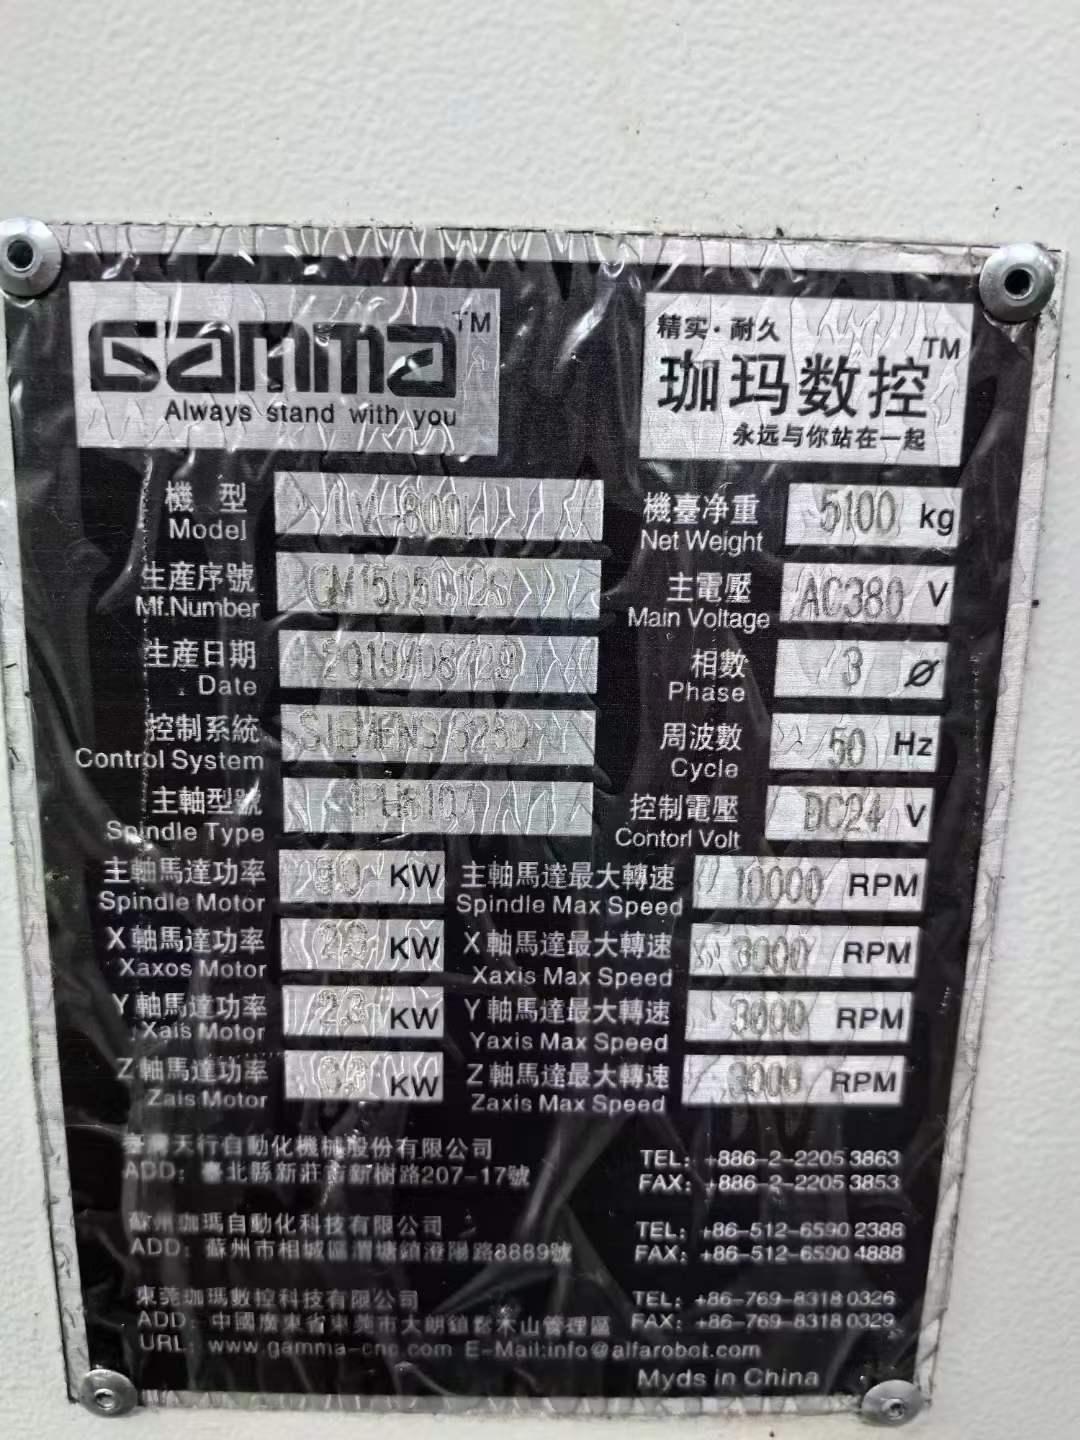 Gamma TM
Always stand with you
精实·耐久
珈玛数控 TM
永远与你站在一起
機型
Model
機臺净重 5100 kg
Net Weight
生産序號
Mf.Number
主電壓 AC380 V
Main Voltage
生産日期 2019/08/29
Date
相數 3 Ø
Phase
控制系統 SIEMENS
Control System
周波數 50 Hz
Cycle
主軸型號
Spindle Type
控制電壓 DC24 V
Contorl Volt
主軸馬達功率 KW 主軸馬達最大轉速 10000 RPM
Spindle Motor Spindle Max Speed
X軸馬達功率 KW X軸馬達最大轉速 3000 RPM
Xaxos Motor Xaxis Max Speed
Y軸馬達功率 2.3 KW Y軸馬達最大轉速 3000 RPM
Xais Motor Yaxis Max Speed
Z軸馬達功率 KW Z軸馬達最大轉速 3000 RPM
Zais Motor Zaxis Max Speed
臺灣天行自動化機械股份有限公司
ADD: 臺北縣新莊市新樹路207-17號
TEL: +886-2-2205 3863
FAX: +886-2-2205 3853
蘇州珈瑪自動化科技有限公司
ADD: 蘇州市相城區渭塘鎮澄陽路8889號
TEL: +86-512-6590 2388
FAX: +86-512-6590 4888
東莞珈瑪數控科技有限公司
ADD: 中國廣東省東莞市大朗鎮松木山管理區
TEL: +86-769-8318 0326
FAX: +86-769-8318 0329
URL: www.gamma-cnc.com E-Mail:info@alfarobot.com
Myds in China